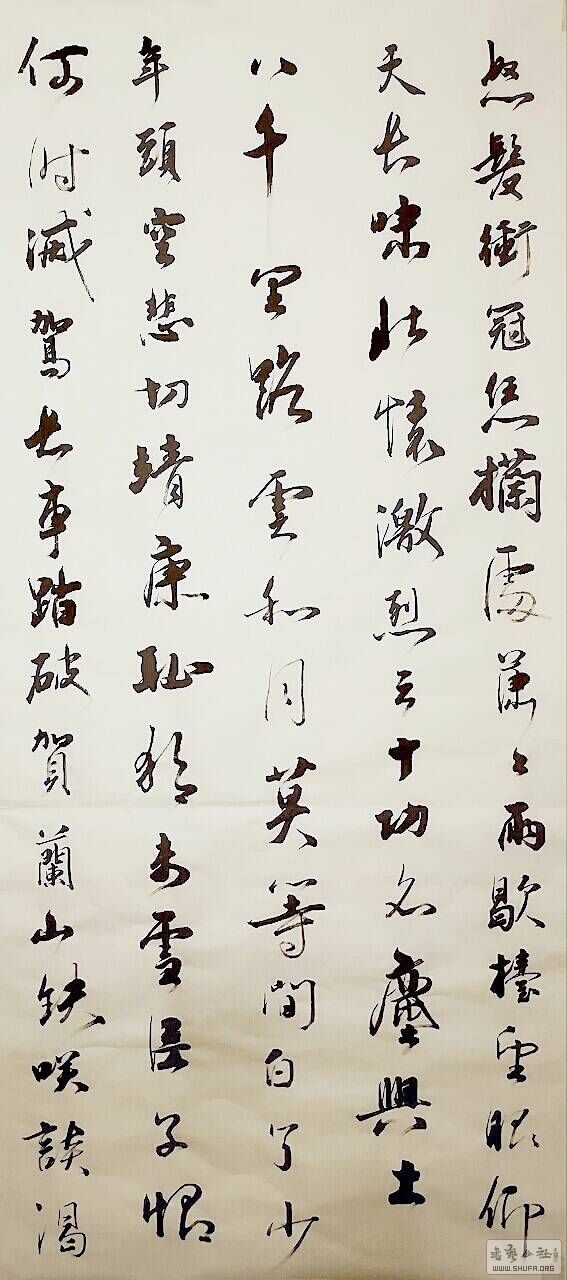 怒髮衝冠凭欄處蕭々雨歇擡望眼仰
天長味此懷激烈三十功名塵與土
八千里路雲和月莫等間白了少
年頭空悲切靖康恥猶未雪臣子恨
何時滅駕長車踏破賀蘭山缺咲談渴
書藝公社
WWW.SHUFA.ORG